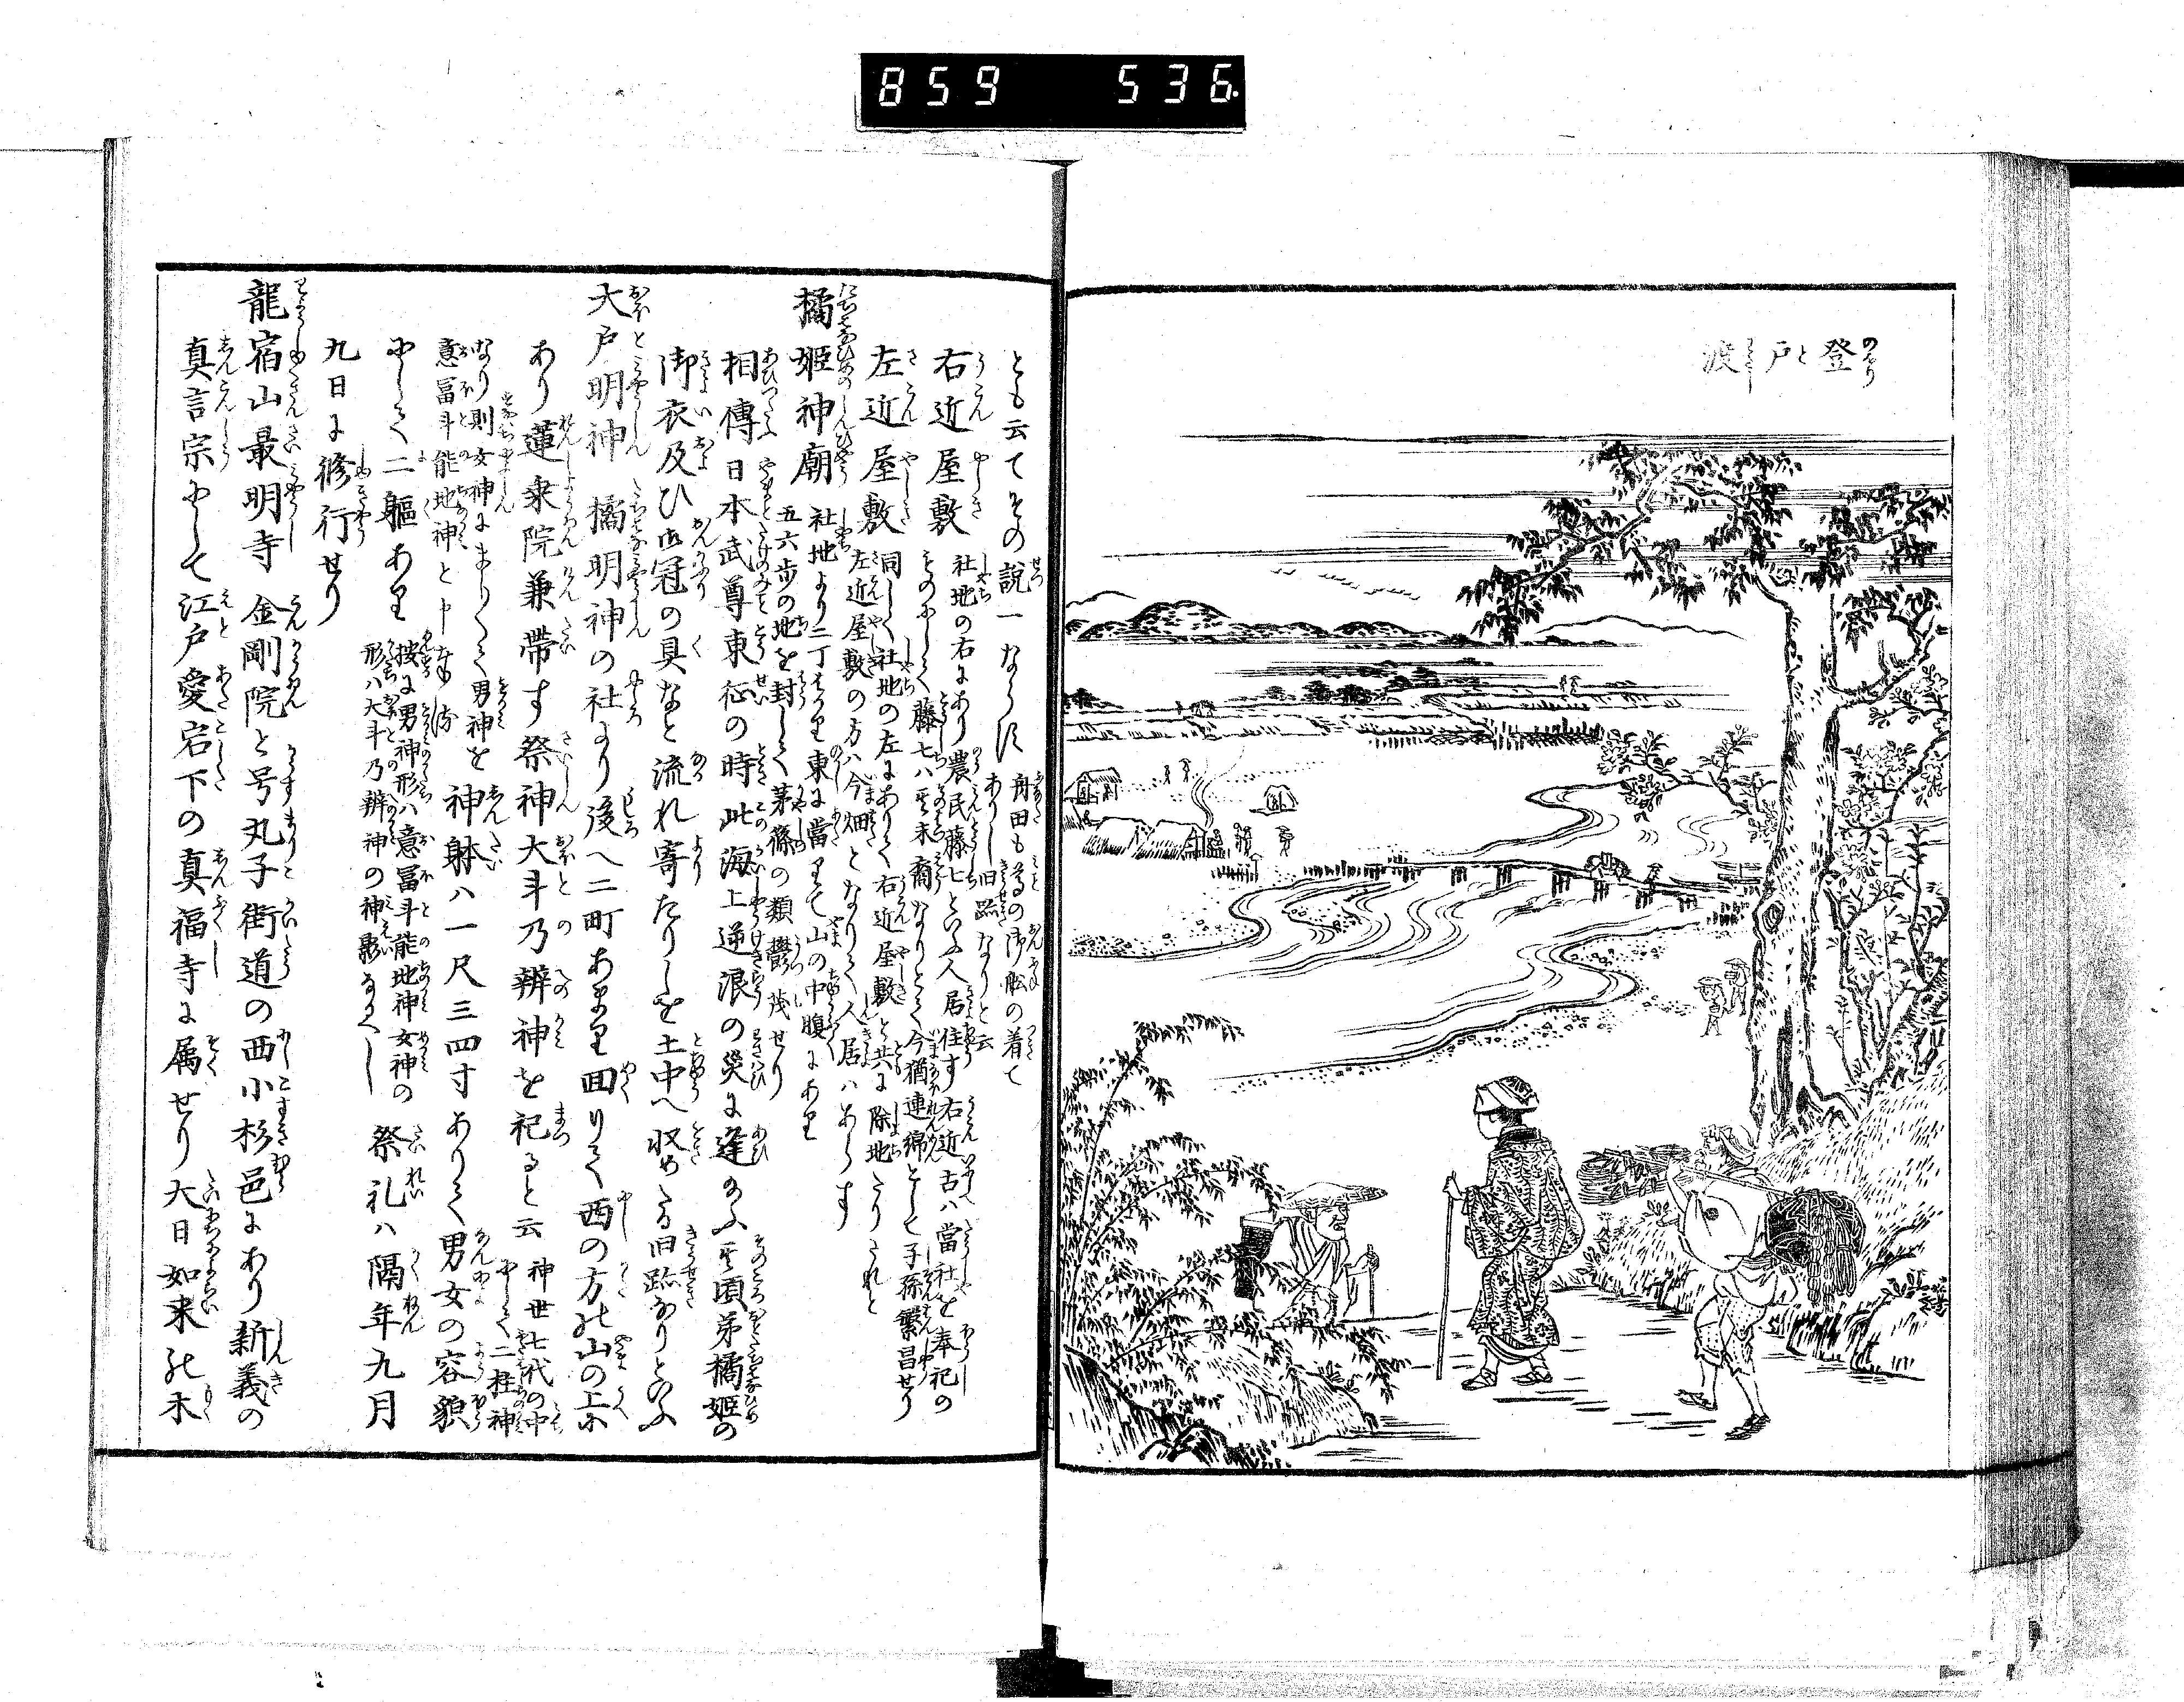 859 536
登戸渡
とも云てその説一ならす
舟田も尊の御船の着て
ありし旧跡なりと云
右近屋敷
社地の右にあり農民藤七といふ人居住す右近古ハ當社を奉祀の
藤七ハ其末裔なりとて今猶連綿として子孫繁昌せり
左近屋敷
同しく社地の左にありて右近屋敷と共に除地たりされと
左近屋敷の方ハ今畑となりて人居ハあらす
橘姫神廟
社地より二丁はかり東に當りて山の中腹にあり
五六歩の地を封して茅篠の類鬱茂せり
相傳日本武尊東征の時此海上逆浪の災に逢給ふ其頃弟橘姫の
御衣及ひ御冠の具なと流れ寄たりしを土中へ収めたる旧跡なりといふ
大戸明神 橘明神の社より後へ二町あまり回りて西の方の山の上に
あり蓮乗院兼帯す祭神大斗乃辨神を祀ると云
神世七代の中
にして二柱神
なり則女神にましまして男神を
意冨斗能地神と申奉る
神躰ハ一尺三四寸ありて男女の容貌
にして二軀あり
按に男神形ハ意冨斗能地神女神の
形ハ大斗乃辨神の神影なるへし
祭礼ハ隔年九月
九日に修行せり
龍宿山最明寺 金剛院と号丸子街道の西小杉邑にあり新義の
真言宗にして江戸愛宕下の真福寺に属せり大日如来の木